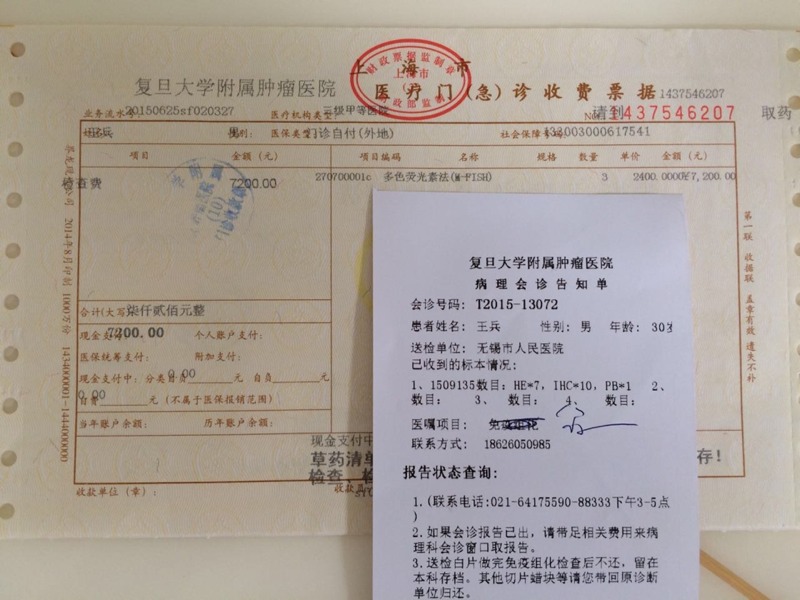 上海市
财政票据监制章
上海市
财政部监制
复旦大学附属肿瘤医院
医疗门(急)诊收费票据
1437546207
业务流水号:20150625sf020327
医疗机构类型:三级甲等医院
请到
No:1437546207
取药
王兵
男
医保类型:门诊自付(外地)
社会保障号码:
项目 金额(元)
项目编码 名称 规格 数量 单价 金额(元)
检查费 7200.00
270700001c 多色荧光素法(M-FISH) 3 2400.0000 ¥7,200.00
(10)
合计(大写)柒仟贰佰元整
现金支付:7200.00 个人账户支付:
医保统筹支付: 附加支付:
现金支付中:分类自负 0.00 元 自负 元
0.00
自费 元 (不属于医保报销范围)
当年账户余额: 历年账户余额:
现金支付中
草药清单
检查,
存!
收款单位(章):
收款
2014年8月印制 1000万份 1434000001-1444000000
第一联 收据联 盖章有效 遗失不补
复旦大学附属肿瘤医院
病理会诊告知单
会诊号码: T2015-13072
患者姓名: 王兵 性别: 男 年龄: 30岁
送检单位: 无锡市人民医院
已收到的标本情况:
1、1509135数目: HE*7, IHC*10, PB*1 2、
数目: 3、 数目: 4、 数目:
医嘱项目:
联系方式: 18626050985
报告状态查询:
1.(联系电话:021-64175590-88333下午3-5点
)
2.如果会诊报告已出,请带足相关费用来病
理科会诊窗口取报告。
3.送检白片做完免疫组化检查后不还,留在
本科存档。其他切片蜡块等请您带回原诊断
单位归还。